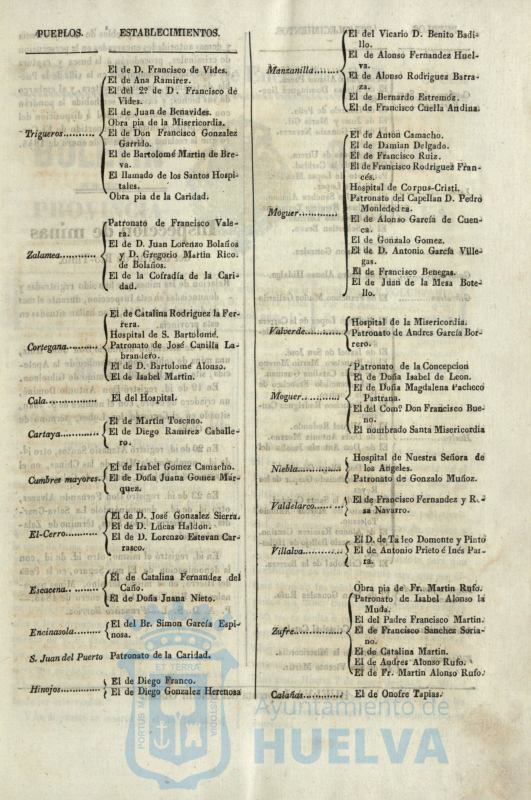 PUEBLOS. ESTABLECIMIENTOS.
El de D. Francisco de Vides.
El de Ana Ramirez.
El del 2º de D. Francisco de
Vides.
El de Juan de Benavides.
Obra pia de la Misericordia.
Trigueros.......... El de Don Francisco Gonzalez
Garrido.
El de Bartolomé Martin de Bre-
va.
El llamado de los Santos Hospi-
tales.
Obra pia de la Caridad.
Patronato de Francisco Vale-
ra.
El de D. Juan Lorenzo Bolaños
Zalamea............ y D. Gregorio Martin Rico.
de Bolaños.
El de la Cofradía de la Cari-
dad.
El de Catalina Rodriguez la Fer-
rera.
Hospital de S. Bartolomé.
Cortegana.......... Patronato de José Canilla La-
brandero.
El de D. Bartolomé Alonso.
El de Isabel Martin.
Cala................ El del Hospital.
El de Martin Toscano.
Cartaya............ El de Diego Ramirez Caballe-
ro.
El de Isabel Gomez Camacho.
Cumbres mayores. El de Doña Juana Gomez Már-
quez.
El de D. José Gonzalez Sierra.
El-Cerro.......... El de D. Lúcas Haldon.
El de D. Lorenzo Estevan Car-
rasco.
El de Catalina Fernandez del
Escacena........... Caño.
El de Doña Juana Nieto.
Encinasola.......... El del Br. Simon García Espi-
nosa.
S. Juan del Puerto Patronato de la Caridad.
Hinojos............. El de Diego Franco.
El de Diego Gonzalez Herenosa
El del Vicario D. Benito Badi-
llo.
El de Alonso Fernandez Huel-
va.
Manzanilla........ El de Alonso Rodriguez Barra-
za.
El de Bernardo Estremoz.
El de Francisco Cuella Andina.
El de Anton Camacho.
El de Damian Delgado.
El de Francisco Ruiz.
El de Francisco Rodriguez Fran-
cés.
Hospital de Corpus-Cristi.
Patronato del Capellan D. Pedro
Moguer............. Moniodedra.
El de Alonso García de Cuen-
ca.
El de Gonzalo Gomez.
El de D. Antonio García Ville-
gas.
El de Francisco Benegas.
El de Juan de la Mesa Bote-
llo.
Hospital de la Misericordia.
Valverde........... Patronato de Andres García Bor-
rero.
Patronato de la Concepcion
El de Doña Isabel de Leon.
El de Doña Magdalena Pacheco
Moguer............ Pastrana.
El del Comº Don Francisco Bue-
no.
El nombrado Santa Misericordia
Hospital de Nuestra Señora de
Niebla.............. los Angeles.
Patronato de Gonzalo Muñoz.
Valdelarco......... El de Francisco Fernandez y R
sa Navarro.
El D. de Tadeo Domonte y Pinto
Villalva............ El de Antonio Prieto é Inés Par-
ra.
Obra pia de Fr. Martin Rufo.
Patronato de Isabel Alonso la
Muda.
El del Padre Francisco Martin.
Zufre............... El de Francisco Sanchez Soria-
no.
El de Catalina Martin.
El de Andres Alonso Rufo.
El de Fr. Martin Alonso Rufo.
Calañas............. El de Onofre Tapias.
ET TERRA
PORTUS
CUSTODIA
Ayuntamiento de
HUELVA